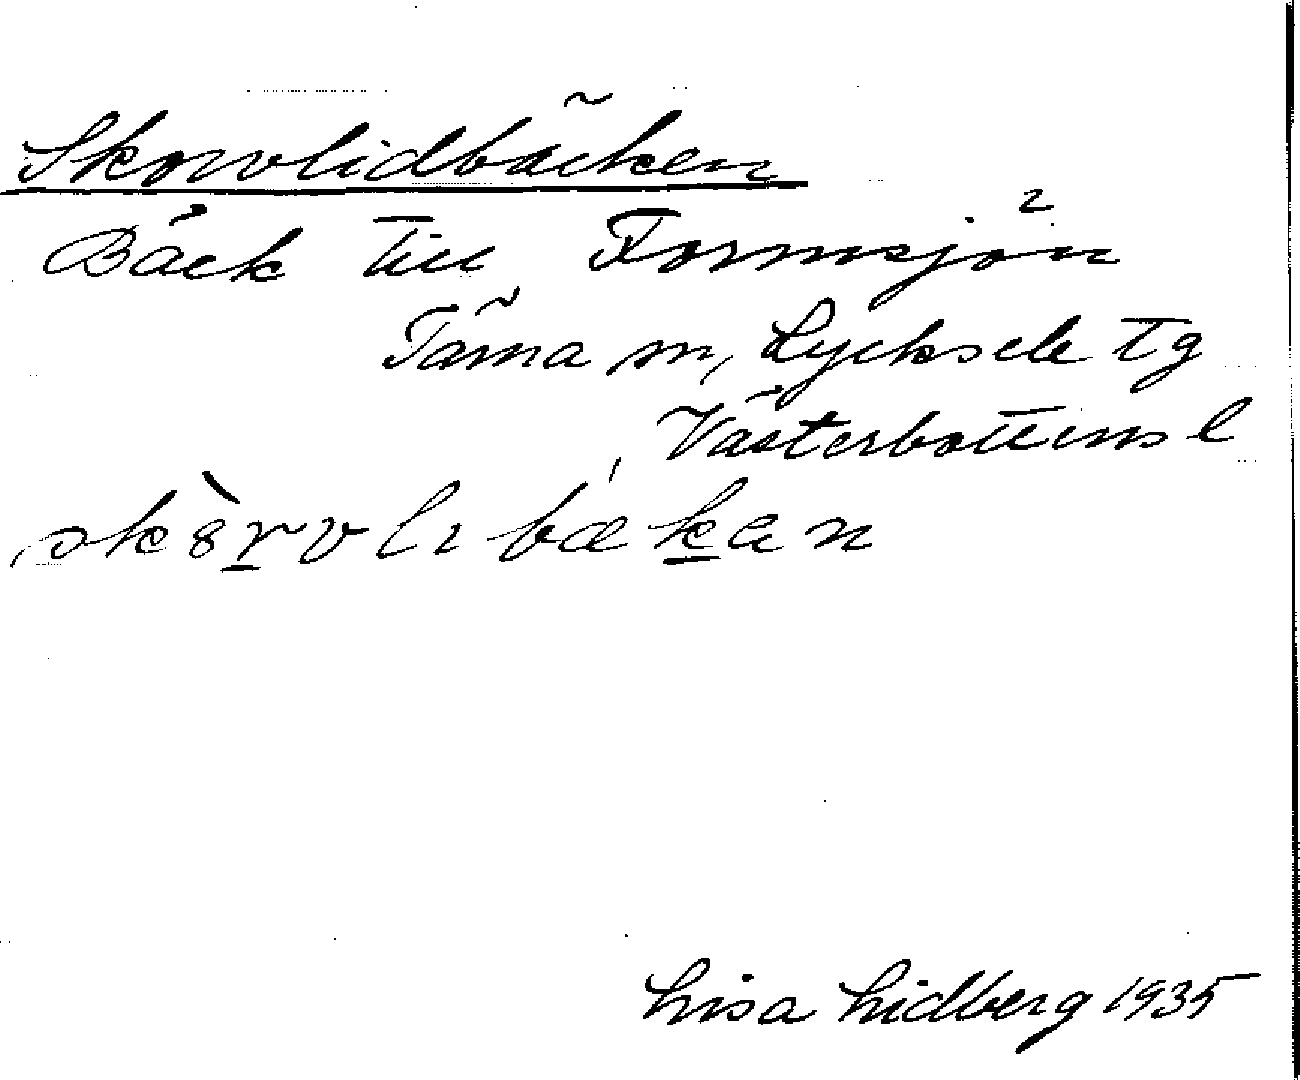 Skorvlidbäcken
Bäck till Tormsjön
Tärna sn, Lycksele tg
Västerbottens l
Lisa Lidberg 1935